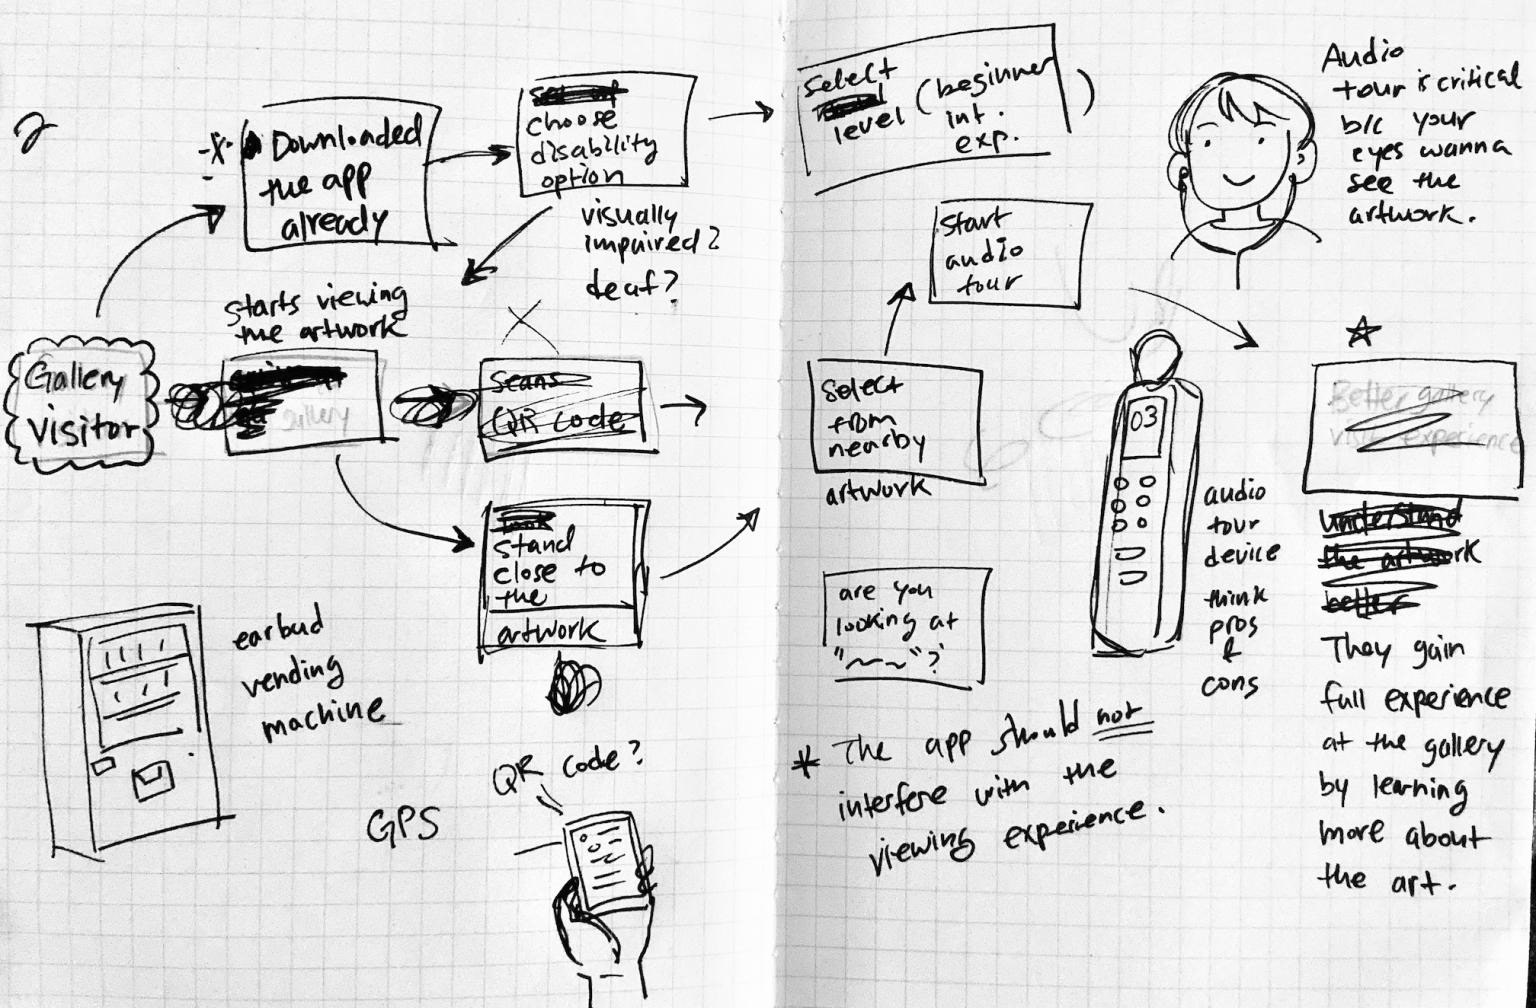 2
Downloaded
the app
already
choose
disability
option
visually
impaired?
deaf?
starts viewing
the artwork
Gallery
visitor
gallery
scans
QR code
stand
close to
the
artwork
earbud
vending
machine
QR code?
GPS
select
level (beginner
int.
exp. )
Audio
tour is critical
b/c your
eyes wanna
see the
artwork.
start
audio
tour
select
from
nearby
artwork
are you
looking at
"~~~"?
03
audio
tour
device
think
pros
&
cons
Better gallery
visit experience
understand
the artwork
better
They gain
full experience
at the gallery
by learning
more about
the art.
* The app should not
interfere with the
viewing experience.